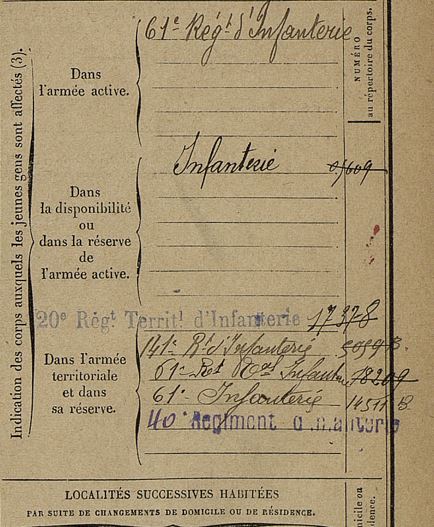 Indication des corps auxquels les jeunes gens sont affectés (3).
NUMÉRO
au répertoire du corps.
Dans
l'armée active.
61e Régt d'Infanterie
Dans
la disponibilité
ou
dans la réserve
de
l'armée active.
Infanterie
20e Régt Territl d'Infanterie 17378
Dans l'armée
territoriale
et dans
sa réserve.
141e Rt d'Infanterie
61e Infanterie 14511 B
40e Régiment d'Infanterie
LOCALITÉS SUCCESSIVES HABITÉES
PAR SUITE DE CHANGEMENTS DE DOMICILE OU DE RÉSIDENCE.